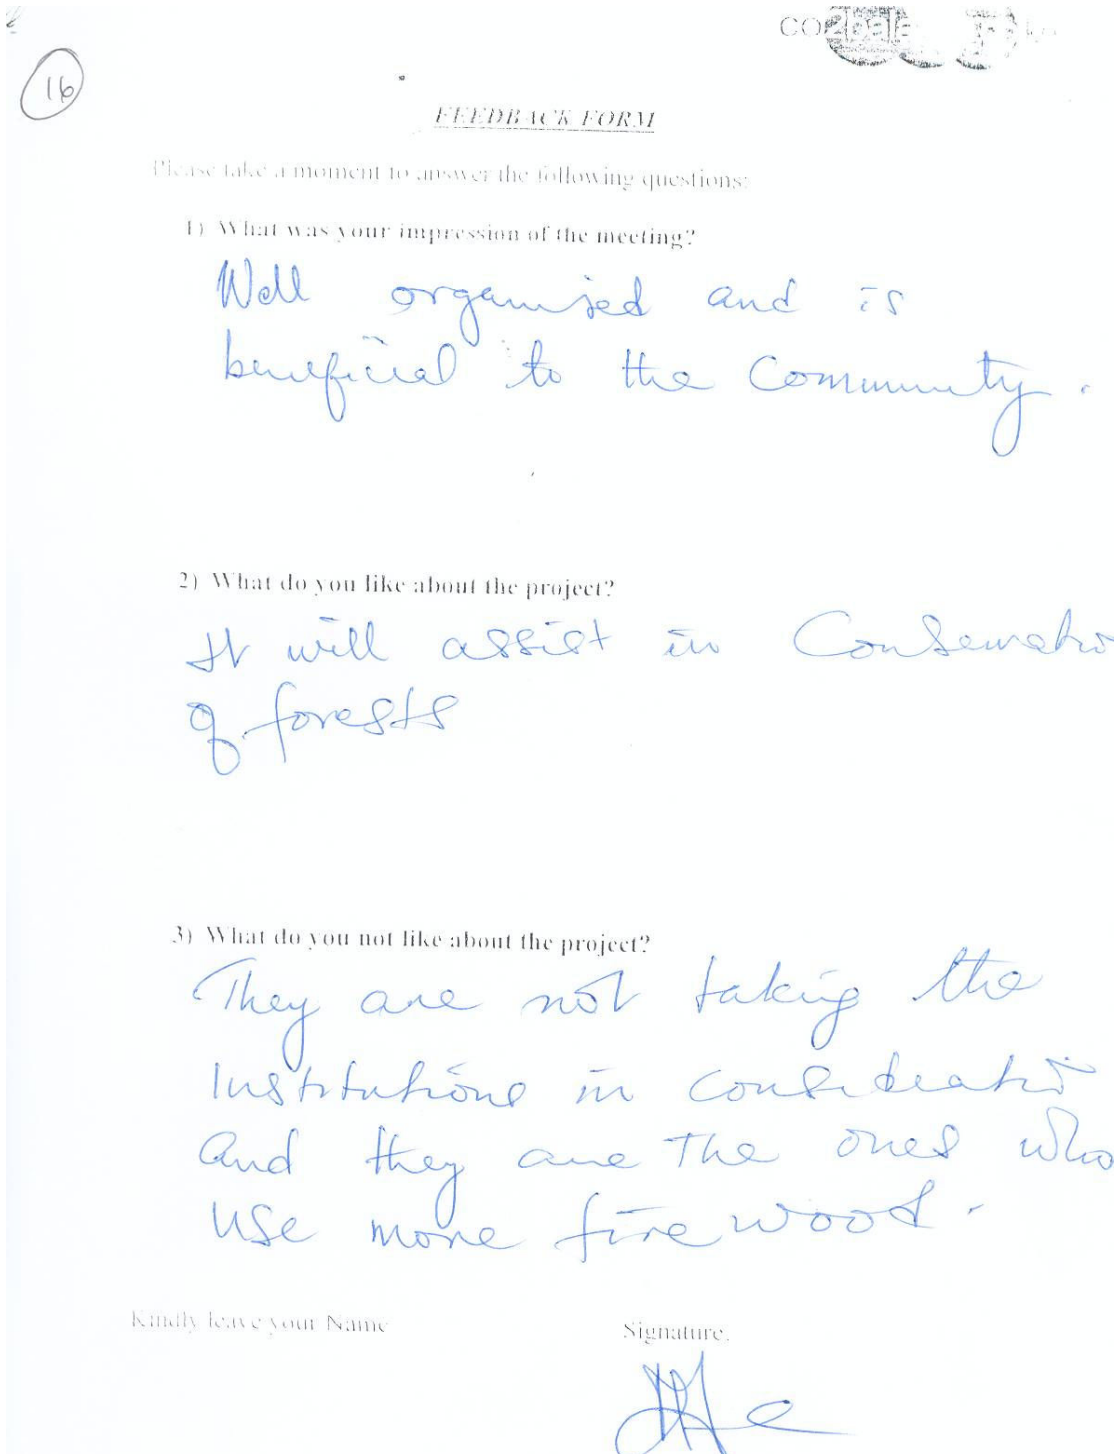 16
CO2balance
FEEDBACK FORM
Please take a moment to answer the following questions:
1) What was your impression of the meeting?
Well organised and is
beneficial to the Community.
2) What do you like about the project?
It will assist in Conservatio
of forests
3) What do you not like about the project?
They are not taking the
Institutions in consideratio
and they are the ones who
use more fire wood.
Kindly leave your Name
Signature.